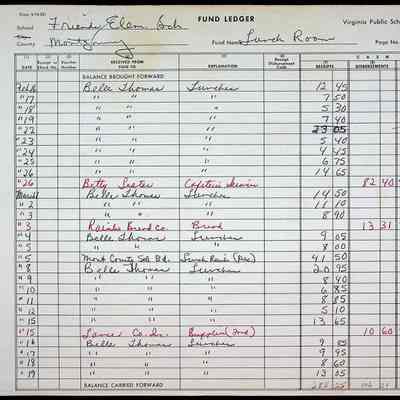 School Friendy Elem Sch FUND LEDGER Virginia Public Sch
County Montgomery Fund Name Lunch Room Page No.
CASH
DATE Receipt or Check No. Voucher Number RECEIVED FROM PAID TO EXPLANATION Receipt Disbursement Code RECEIPTS DISBURSEMENTS
BALANCE BROUGHT FORWARD
Feb 16 Belle Thomas Lunches 12 45
"17 " " " 7 50
"18 " " " 5 30
"19 " " " 7 40
"22 " " " 23 05
"23 " " " 5 40
"24 " " " 4 45
"25 " " " 6 75
"26 " " " 14 65
"26 Betty 82 40
March 1 Belle Thomas Lunches 14 50
"2 " " " 11 10
"3 " " " 8 90
"3 Rainbo Bread Co. Bread 13 31
"4 Belle Thomas Lunches 9 05
"5 " " " 8 00
"5 Mont County Sch Bd. Lunch Reim (Dec) 41 50
"8 Belle Thomas Lunches 20 95
"9 " " " 8 40
"10 " " " 6 85
"11 " " " 8 85
"12 " " " 5 10
"15 " " " 13 65
"15 Lance Co. Inc. Supplies (Ind) 10 60
"16 Belle Thomas Lunches 9 85
"17 " " " 9 95
"18 " " " 8 60
"19 " " " 13 05
BALANCE CARRIED FORWARD